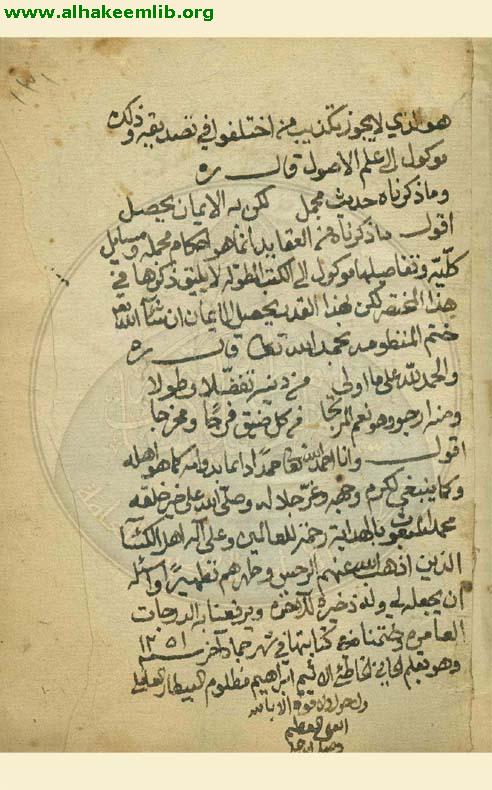 www.alhakeemlib.org
هو الذي لا يجوز تكذيب من اختلفوا في تصديقه وذلك
موكول الى علم الاصول قال ره
وما ذكرناه حديث مجمل لكن به الايمان يحصل
اقول ما ذكرناه من العقايد انما هو احكام مجملة ومسايل
كلية وتفاصيلها موكول الى الكتب المطولة لا يليق ذكرها في
هذا المختصر لكن بهذا القدر يحصل الايمان ان شآء الله
ختم المنظومة بحمد الله تعا قال ره
والحمد لله على ما اولى من دينه تفضلا وطولا
ومنه ارجو وهو نعم المرتجا في كل ضيق فرجا ومخرجا
اقول وانا احمد الله تعا حمدا دايما بدوامه كما هو اهله
وكما ينبغي لكرم وجهه وعز جلاله وصلى الله على خير خلقه
محمد المبعوث بالهداية رحمة للعالمين وعلى آله اهل الكسآ
الذين اذهب الله عنهم الرجس وطهرهم تطهيرا واسئله
ان يجعله لي وله ذخيرة للآخرة ويرفعنا به الدرجات
العامرة كتابتها في شهر جماد آخر سنة ١٢٥١
وهو بقلم الجاني الخاطئ الاثيم ابراهيم مظلوم البيطار
ولا حول ولا قوة الا بالله
العلي العظيم